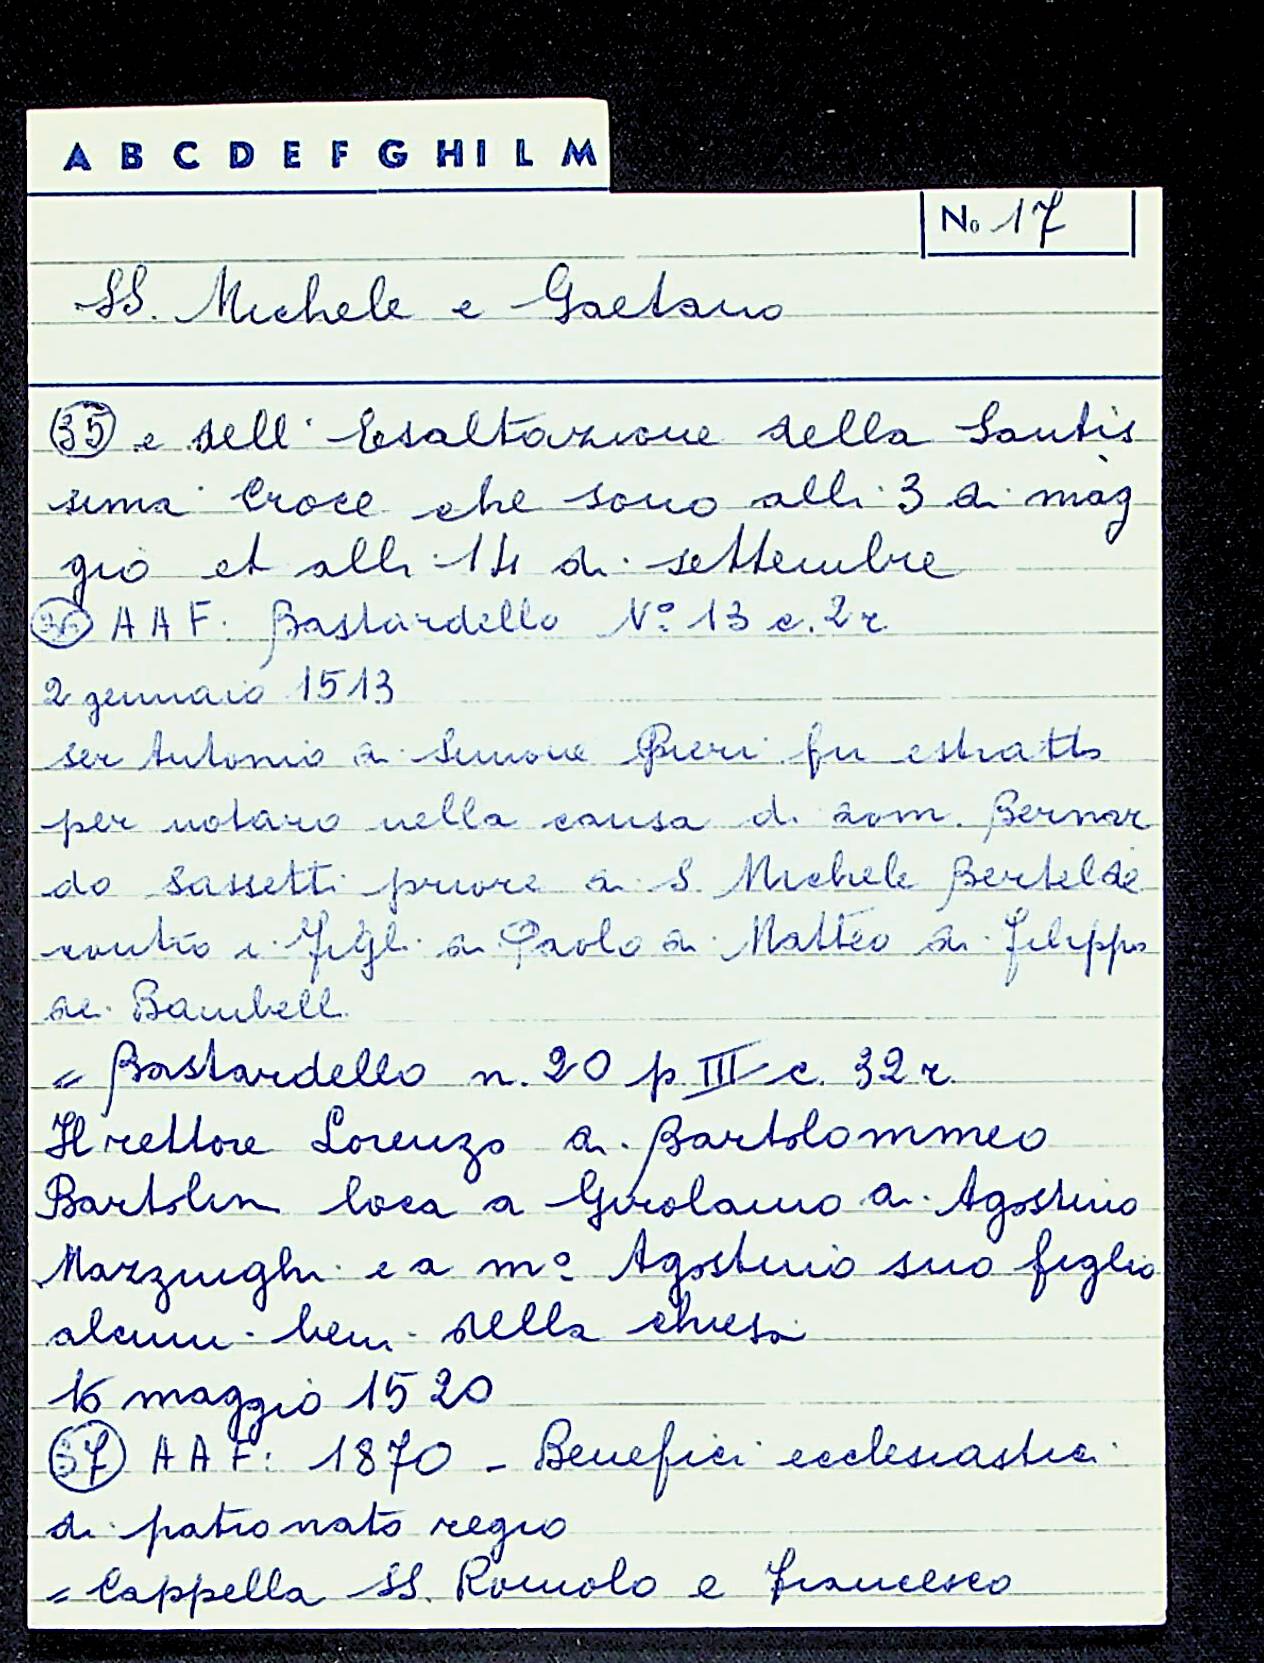 A B C D E F G H I L M
No 17
SS. Michele e Gaetano
35 e dell'Esaltazione della Santis
sima Croce che sono alli 3 di mag
gio et alli 14 di settembre
36 AAF. Bastardello N.º 13 c. 2 r
2 gennaio 1513
ser Antonio di Simone Pieri fu estratto
per notaro nella causa di dom. Bernar
do Sassetti priore di S. Michele Bertelde
contro i figli di Paolo di Matteo di Filippo
de' Bambelli
= Bastardello n. 20 p. III c. 32 r.
Il rettore Lorenzo di Bartolommeo
Bartolini loca a Girolamo di Agostino
Marzinghi e a mº Agostino suo figlio
alcuni beni della chiesa
16 maggio 1520
37 AAF: 1870 - Benefici ecclesiastici
di patronato regio
= Cappella SS. Romolo e Francesco